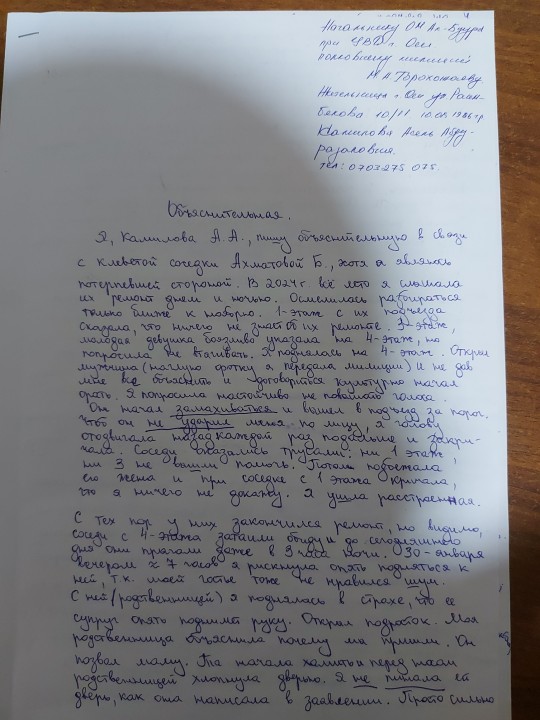 Начальнику ОМ Ак-Буура
при УВД г. Ош
полковнику милиции
М.А.
Жительницы г. Ош ул Раим-
бекова 10/11 10.01.1986гр
Камиловой Асель Абду-
разаковна.
тел: 0703 275 075.
Объяснительная.
Я, Камилова А.А., пишу объяснительную в связи
с клеветой соседки Ахматовой Б., хотя я являюсь
потерпевшей стороной. В 2024г. всё лето я слышала
их ремонт днем и ночью. Осмелилась разбираться
только ближе к ноябрю. 1-этаж с их подъезда
сказала, что ничего не знает об их ремонте. 3-этаж,
молодая девушка боязливо указала на 4-этаж, но
попросила не втягивать. Я поднялась на 4-этаж. Открыл
мужчина (наглую фотку я передала милиции) и не дав
мне все объяснить и договориться культурно начал
орать. Я попросила настойчиво не повышать голоса.
Он начал замахиваться и вышел в подъезд за порог.
Чтоб он не ударил меня по лицу, я голову
отодвигала назад каждой раз подальше и закри-
чала. Соседи оказались трусами: ни 1 этаж,
ни 3 не вышли помочь. Потом подбежала
его жена и при соседке с 1 этажа кричала,
что я ничего не докажу. Я ушла расстроенная.
С тех пор у них закончился ремонт, но видимо,
соседи с 4-этажа затаили обиду и до сегодняшнего
дня они прыгали даже в 3 часа ночи. 30-января
вечером ≈ 7 часов я рискнула опять подняться к
ней, т.к. моей гостье тоже не нравился шум.
С ней (родственницей) я поднялась в страхе, что ее
супруг опять поднимет руку. Открыл подросток. Моя
родственница объяснила почему мы пришли. Он
позвал маму. Та начала хамить и перед моей
родственницей хлопнула дверью. Я не пинала её
дверь, как она написала в заявлении. Просто сильно